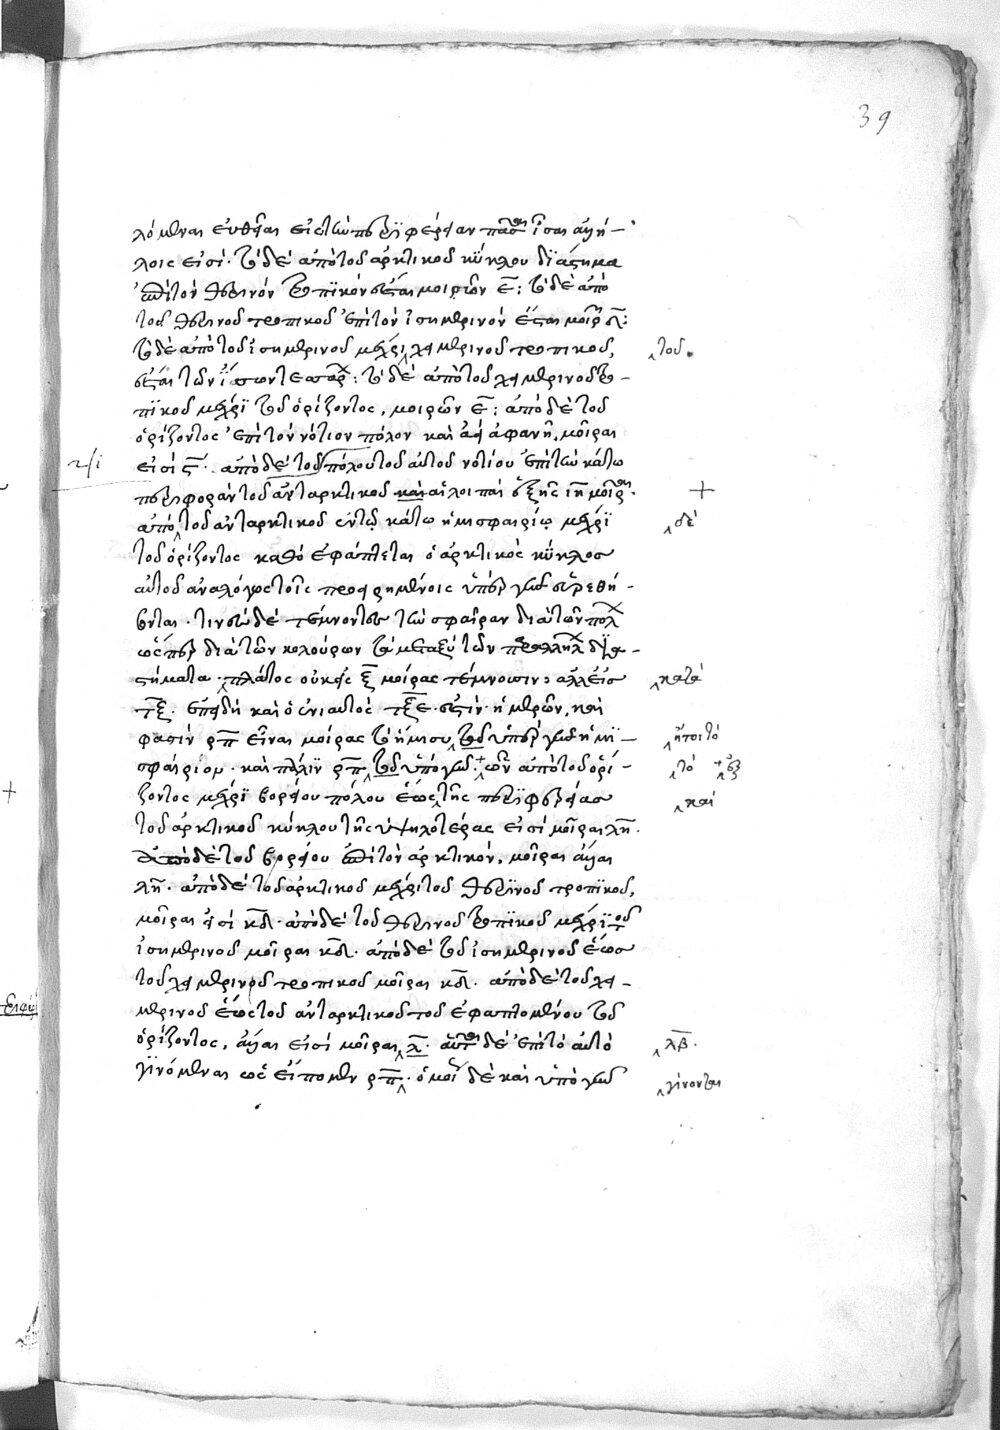 39
λόμεναι εὐθεῖαι εἰς τὴν περιφέρειαν πᾶσαι ἴσαι ἀλλή-
λοις εἰσί· τὸ δὲ ἀπὸ τοῦ ἀρκτικοῦ κύκλου διάστημα
ἐπὶ τὸν θερινὸν τροπικόν ἐστι μοιρῶν ε̅: τὸ δὲ ἀπὸ
τοῦ θερινοῦ τροπικοῦ ἐπὶ τὸν ἰσημερινὸν ἔσται μοιρῶν δ̅:
τὸ δὲ ἀπὸ τοῦ ἰσημερινοῦ μέχρι χειμερινοῦ τροπικοῦ, τοῦ
ἐστι τῶν ἴσων τεσσάρων: τὸ δὲ ἀπὸ τοῦ χειμερινοῦ τρο-
πικοῦ μέχρι τοῦ ὁρίζοντος, μοιρῶν ε̅: ἀπὸ δὲ τοῦ
ὁρίζοντος ἐπὶ τὸν νότιον πόλον καὶ ἀεὶ ἀφανῆ, μοῖραι
εἰσὶ ϛ̅· ἀπὸ δὲ τοῦ πόλου τοῦ αὐτοῦ νοτίου ἐπὶ τὴν κάτω
περιφορὰν τοῦ ἀνταρκτικοῦ καὶ αἱ λοιπαὶ ἑξῆς μοῖραι· +
ἀπὸ τοῦ ἀνταρκτικοῦ ἐν τῷ κάτω ἡμισφαιρίῳ μέχρι δὲ
τοῦ ὁρίζοντος καθὸ ἐφάπτεται ὁ ἀρκτικὸς κύκλος
αὐτοῦ ἀναλόγως τοῖς προειρημένοις ὑπὲρ γῆν εὑρεθή-
σονται· τινὲς δὲ τέμνοντες τὴν σφαῖραν διὰ τῶν πόλων
ὥσπερ διὰ τῶν κολούρων τὰ μεταξὺ τῶν παραλλήλων δια-
στήματα· πλάτος οὐκ εἰς ξ̅ μοίρας τέμνουσιν: ἀλλ' εἰς κατὰ
τ̅ξ̅· ἐπειδὴ καὶ ὁ ἐνιαυτὸς τ̅ξ̅ε̅ ἐστὶν ἡμερῶν, καί
φασιν ρ̅π̅ εἶναι μοίρας τὸ ἥμισυ τοῦ ὑπὲρ γῆν ἡμι- ἤτοι τὸ
σφαιρίου· καὶ πάλιν ρ̅π̅ τοῦ ὑπὸ γῆν· ὧν ἀπὸ τοῦ ὁρί- τὸ + ἐξ
ζοντος μέχρι βορείου πόλου ἕως τῆς περιφερείας καὶ
τοῦ ἀρκτικοῦ κύκλου τῆς ὑψηλοτέρας εἰσὶ μοῖραι λ̅η̅·
ἀπὸ δὲ τοῦ βορείου ἐπὶ τὸν ἀρκτικόν, μοῖραι ἄλλαι
λ̅η̅· ἀπὸ δὲ τοῦ ἀρκτικοῦ μέχρι τοῦ θερινοῦ τροπικοῦ,
μοῖραι εἰσὶ κ̅δ̅· ἀπὸ δὲ τοῦ θερινοῦ τροπικοῦ μέχρι τοῦ
ἰσημερινοῦ μοῖραι κ̅δ̅· ἀπὸ δὲ τοῦ ἰσημερινοῦ ἕως
τοῦ χειμερινοῦ τροπικοῦ μοῖραι κ̅δ̅· ἀπὸ δὲ τοῦ χει-
μερινοῦ ἕως τοῦ ἀνταρκτικοῦ τοῦ ἐφαπτομένου τοῦ
ὁρίζοντος, ἄλλαι εἰσὶ μοῖραι λ̅· αὗται δὲ ἐπὶ τὸ αὐτὸ λ̅β̅·
γινόμεναι ὡς εἴπομεν ρ̅π̅· ὁμοίως δὲ καὶ ὑπὸ γῆν γίνονται